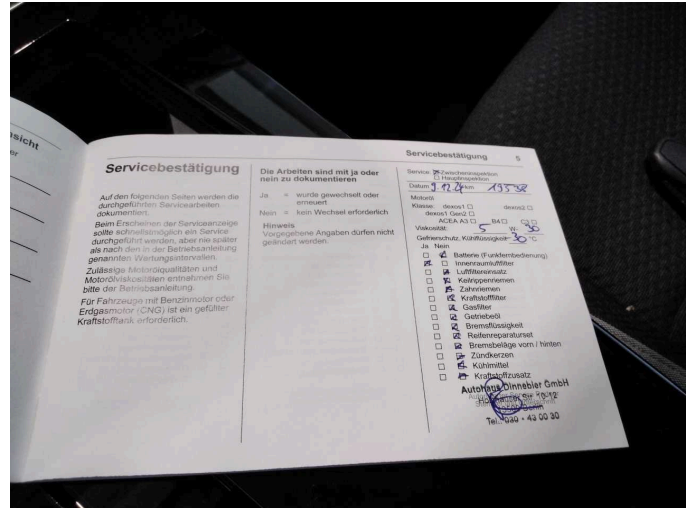 sicht
er
Servicebestätigung
Auf den folgenden Seiten werden die
durchgeführten Servicearbeiten
dokumentiert.
Beim Erscheinen der Serviceanzeige
sollte schnellstmöglich ein Service
durchgeführt werden, aber nie später
als nach den in der Betriebsanleitung
genannten Wartungsintervallen.
Zulässige Motorölqualitäten und
Motorölviskositäten entnehmen Sie
bitte der Betriebsanleitung.
Für Fahrzeuge mit Benzinmotor oder
Erdgasmotor (CNG) ist ein gefüllter
Kraftstofftank erforderlich.
Die Arbeiten sind mit ja oder
nein zu dokumentieren
Ja = wurde gewechselt oder
erneuert
Nein = kein Wechsel erforderlich
Hinweis
Vorgegebene Angaben dürfen nicht
geändert werden.
Servicebestätigung 5
Service: Zwischeninspektion
Hauptinspektion
Datum 9.12.24 km 19538
Motoröl
Klasse: dexos1 dexos2
dexos1 Gen2
ACEA A3 B4 C3
Viskosität: 5 W- 30
Gefrierschutz, Kühlflüssigkeit - 30 °C
Ja Nein
Batterie (Funkfernbedienung)
Innenraumluftfilter
Luftfiltereinsatz
Keilrippenriemen
Zahnriemen
Kraftstofffilter
Gasfilter
Getriebeöl
Bremsflüssigkeit
Reifenreparaturset
Bremsbeläge vorn / hinten
Zündkerzen
Kühlmittel
Kraftstoffzusatz
Autohaus Dinnebier GmbH
Str. 10-12
Berlin
Tel.: 030 - 43 00 30